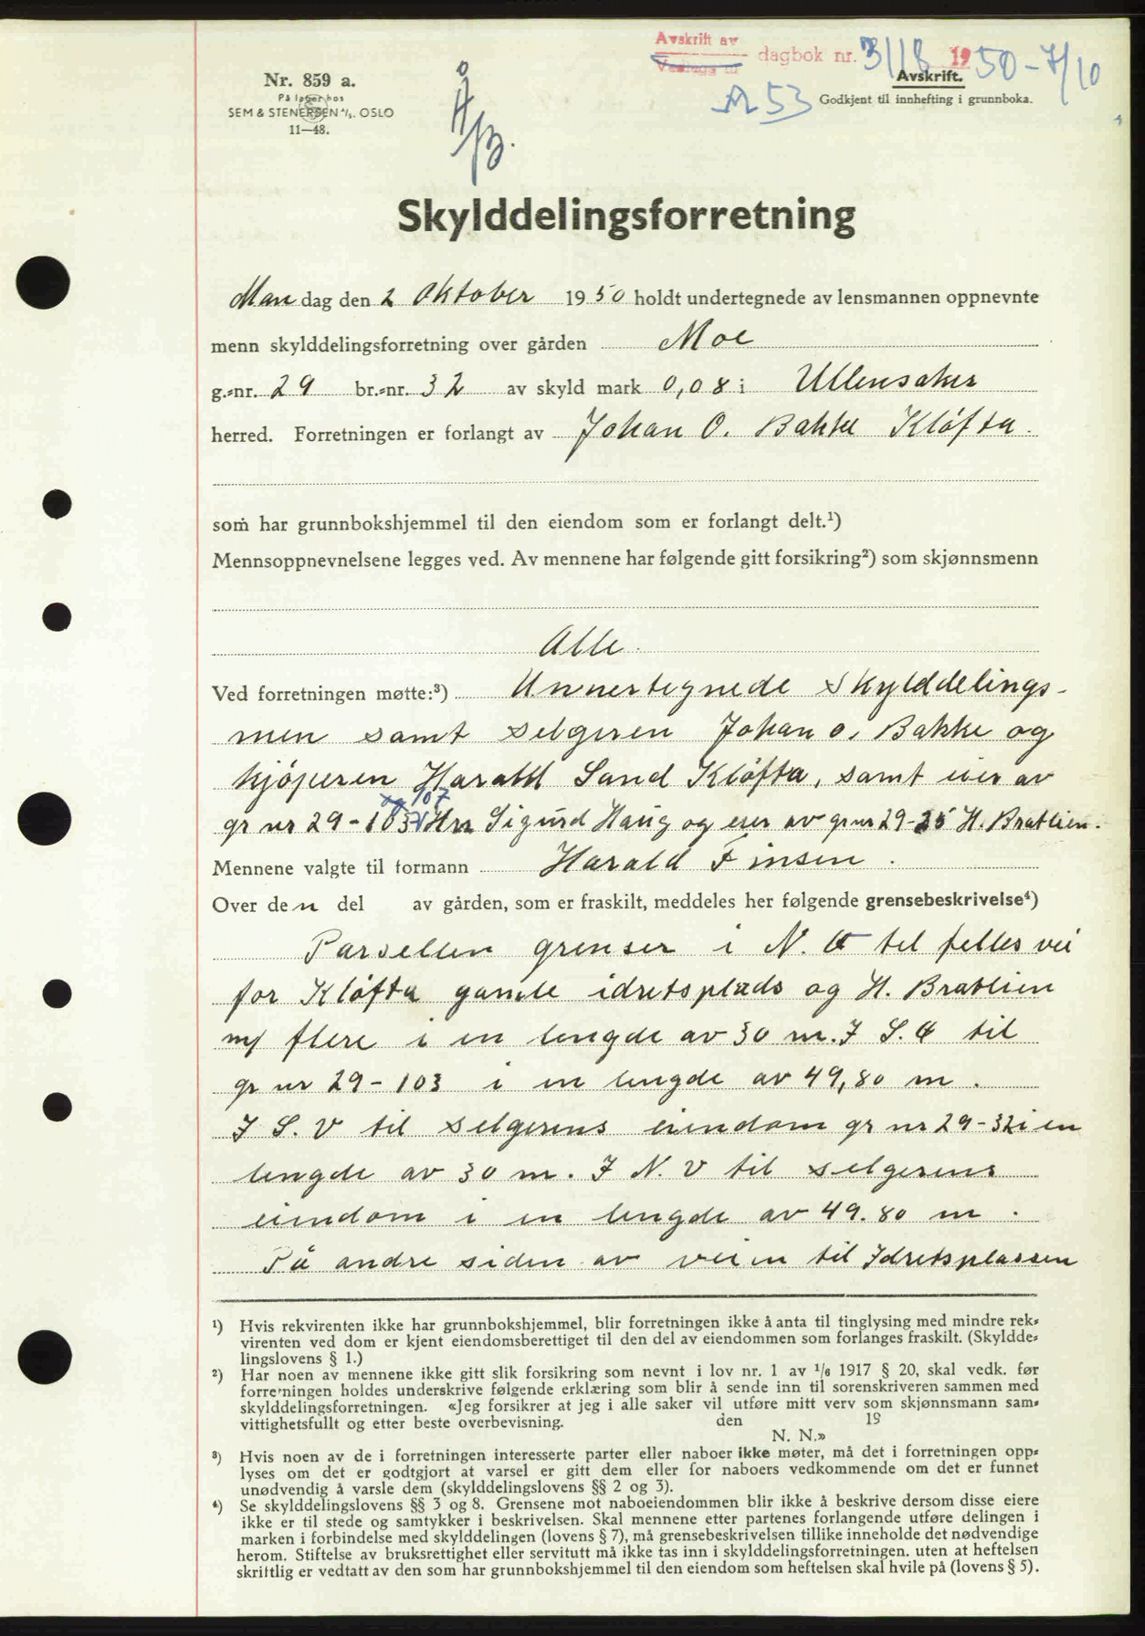 Avskrift av
dagbok nr. 3118 1950-7/10
Avskrift.
A 53
Godkjent til innhefting i grunnboka.
Nr. 859 a.
På lager hos
SEM & STENERSEN A/S. OSLO
11—48.
Skylddelingsforretning
Man dag den 2 Oktober 1950 holdt undertegnede av lensmannen oppnevnte
menn skylddelingsforretning over gården Moe
g.-nr. 29 br.-nr. 32 av skyld mark 0,08 i Ullensaker
herred. Forretningen er forlangt av Johan O. Bakke Kløfta.
som har grunnbokshjemmel til den eiendom som er forlangt delt.¹)
Mennsoppnevnelsene legges ved. Av mennene har følgende gitt forsikring²) som skjønnsmenn
Alle.
Ved forretningen møtte:³) Unnertegnede skylddelings-
men samt selgeren Johan O. Bakke og
kjøperen Harald Sand Kløfta, samt eier av
og 107
gr nr 29-103 Hrr Sigurd Haug og eier av gr nr 29-25 H. Bratlien.
Mennene valgte til formann Harald Finsen.
Over den del av gården, som er fraskilt, meddeles her følgende grensebeskrivelse⁴)
Parsellen grenser i N. Ø til felles vei
for Kløfta gamle idretsplads og H. Bratlien
m/ flere i en lengde av 30 m. I S. Ø til
gr nr 29-103 i en lengde av 49,80 m.
I S. V til selgerens eiendom gr nr 29-32 i en
lengde av 30 m. I N. V til selgerens
eiendom i en lengde av 49.80 m.
På andre siden av veien til Idretsplassen
¹) Hvis rekvirenten ikke har grunnbokshjemmel, blir forretningen ikke å anta til tinglysing med mindre rek-
virenten ved dom er kjent eiendomsberettiget til den del av eiendommen som forlanges fraskilt. (Skyldde-
lingslovens § 1.)
²) Har noen av mennene ikke gitt slik forsikring som nevnt i lov nr. 1 av 1/6 1917 § 20, skal vedk. før
forretningen holdes underskrive følgende erklæring som blir å sende inn til sorenskriveren sammen med
skylddelingsforretningen. «Jeg forsikrer at jeg i alle saker vil utføre mitt verv som skjønnsmann sam-
vittighetsfullt og etter beste overbevisning. den 19
N. N.»
³) Hvis noen av de i forretningen interesserte parter eller naboer ikke møter, må det i forretningen opp-
lyses om det er godtgjort at varsel er gitt dem eller for naboers vedkommende om det er funnet
unødvendig å varsle dem (skylddelingslovens §§ 2 og 3).
⁴) Se skylddelingslovens §§ 3 og 8. Grensene mot naboeiendommen blir ikke å beskrive dersom disse eiere
ikke er til stede og samtykker i beskrivelsen. Skal mennene etter partenes forlangende utføre delingen i
marken i forbindelse med skylddelingen (lovens § 7), må grensebeskrivelsen tillike inneholde det nødvendige
herom. Stiftelse av bruksrettighet eller servitutt må ikke tas inn i skylddelingsforretningen. uten at heftelsen
skriftlig er vedtatt av den som har grunnbokshjemmel til den eiendom som heftelsen skal hvile på (lovens § 5).